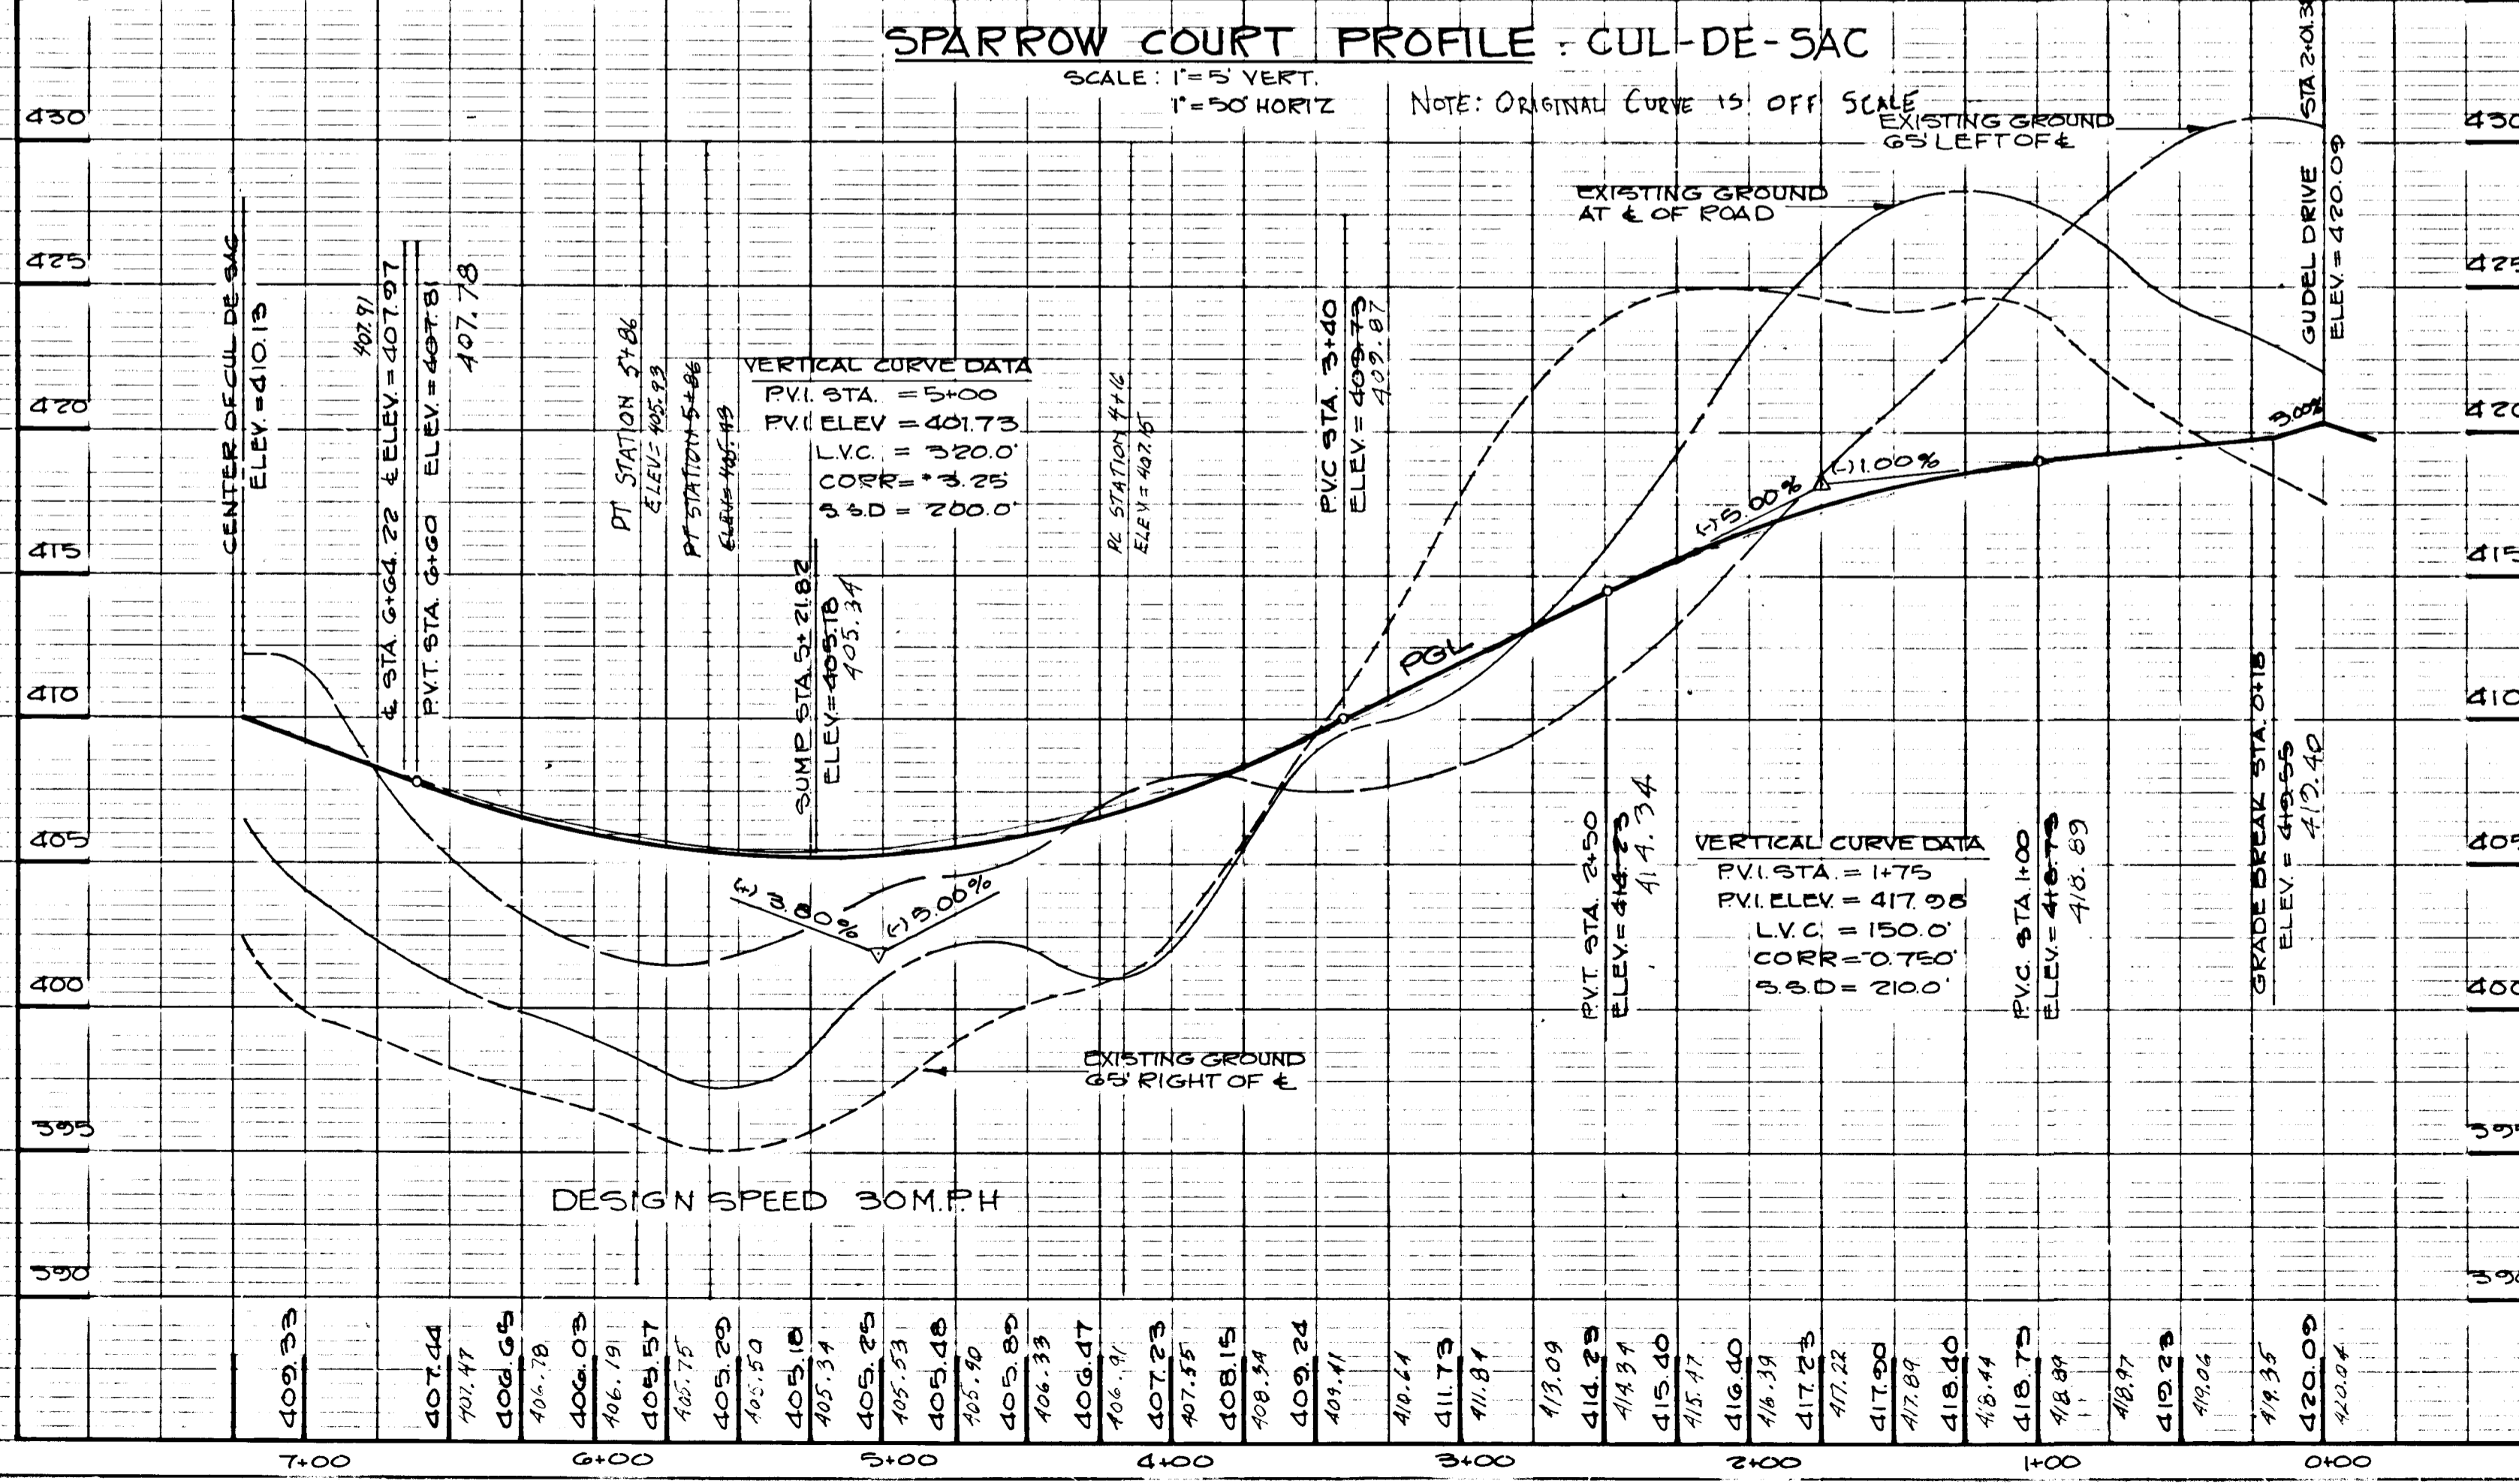 SPARROW COURT PROFILE : CUL-DE-SAC
SCALE: 1"=5' VERT.
1"=50' HORIZ
NOTE: ORIGINAL CURVE IS OFF SCALE
EXISTING GROUND
65' LEFT OF ℄
EXISTING GROUND
AT ℄ OF ROAD
GUDEL DRIVE
ELEV. = 420.09
430
425
420
415
410
405
400
395
390
430
425
420
415
410
405
400
CENTER OF CUL DE SAC
ELEV. = 410.13
407.91
℄ STA. 6+64.22 ℄ ELEV. = 407.97
P.V.T. STA. 6+60 ELEV. = 407.81
407.78
PT STATION 5+86
ELEV= 405.93
PT STATION 5+86
ELEV= 405.93
VERTICAL CURVE DATA
P.V.I. STA. = 5+00
P.V.I ELEV = 401.73
L.V.C. = 320.0'
CORR= +3.25'
S.S.D = 200.0'
SUMP STA. 5+21.82
ELEV. = 405.18
405.34
PC STATION 4+16
ELEV= 407.15
P.V.C STA. 3+40
ELEV. = 409.73
409.87
PGL
(-) 5.00%
(-) 1.00%
3.00%
(+) 3.80%
(-) 5.00%
P.V.T. STA. 2+50
ELEV. = 414.23
414.34
VERTICAL CURVE DATA
P.V.I. STA. = 1+75
P.V.I. ELEV. = 417.98
L.V.C. = 150.0'
CORR = -0.750'
S.S.D = 210.0'
P.V.C. STA. 1+00
ELEV. = 418.73
418.89
GRADE BREAK STA. 0+18
ELEV. = 419.55
419.40
EXISTING GROUND
65' RIGHT OF ℄
DESIGN SPEED 30 M.P.H
409.33
407.44
407.47
406.65
406.78
406.03
406.191
405.57
405.75
405.29
405.50
405.18
405.34
405.25
405.53
405.48
405.90
405.89
406.33
406.47
406.91
407.23
407.55
408.15
408.34
409.24
409.41
410.64
411.73
411.84
413.09
414.23
414.34
415.40
415.47
416.40
416.39
417.23
417.22
417.90
417.89
418.40
418.44
418.73
418.89
418.97
419.23
419.06
419.35
420.09
420.04
7+00
6+00
5+00
4+00
3+00
2+00
1+00
0+00